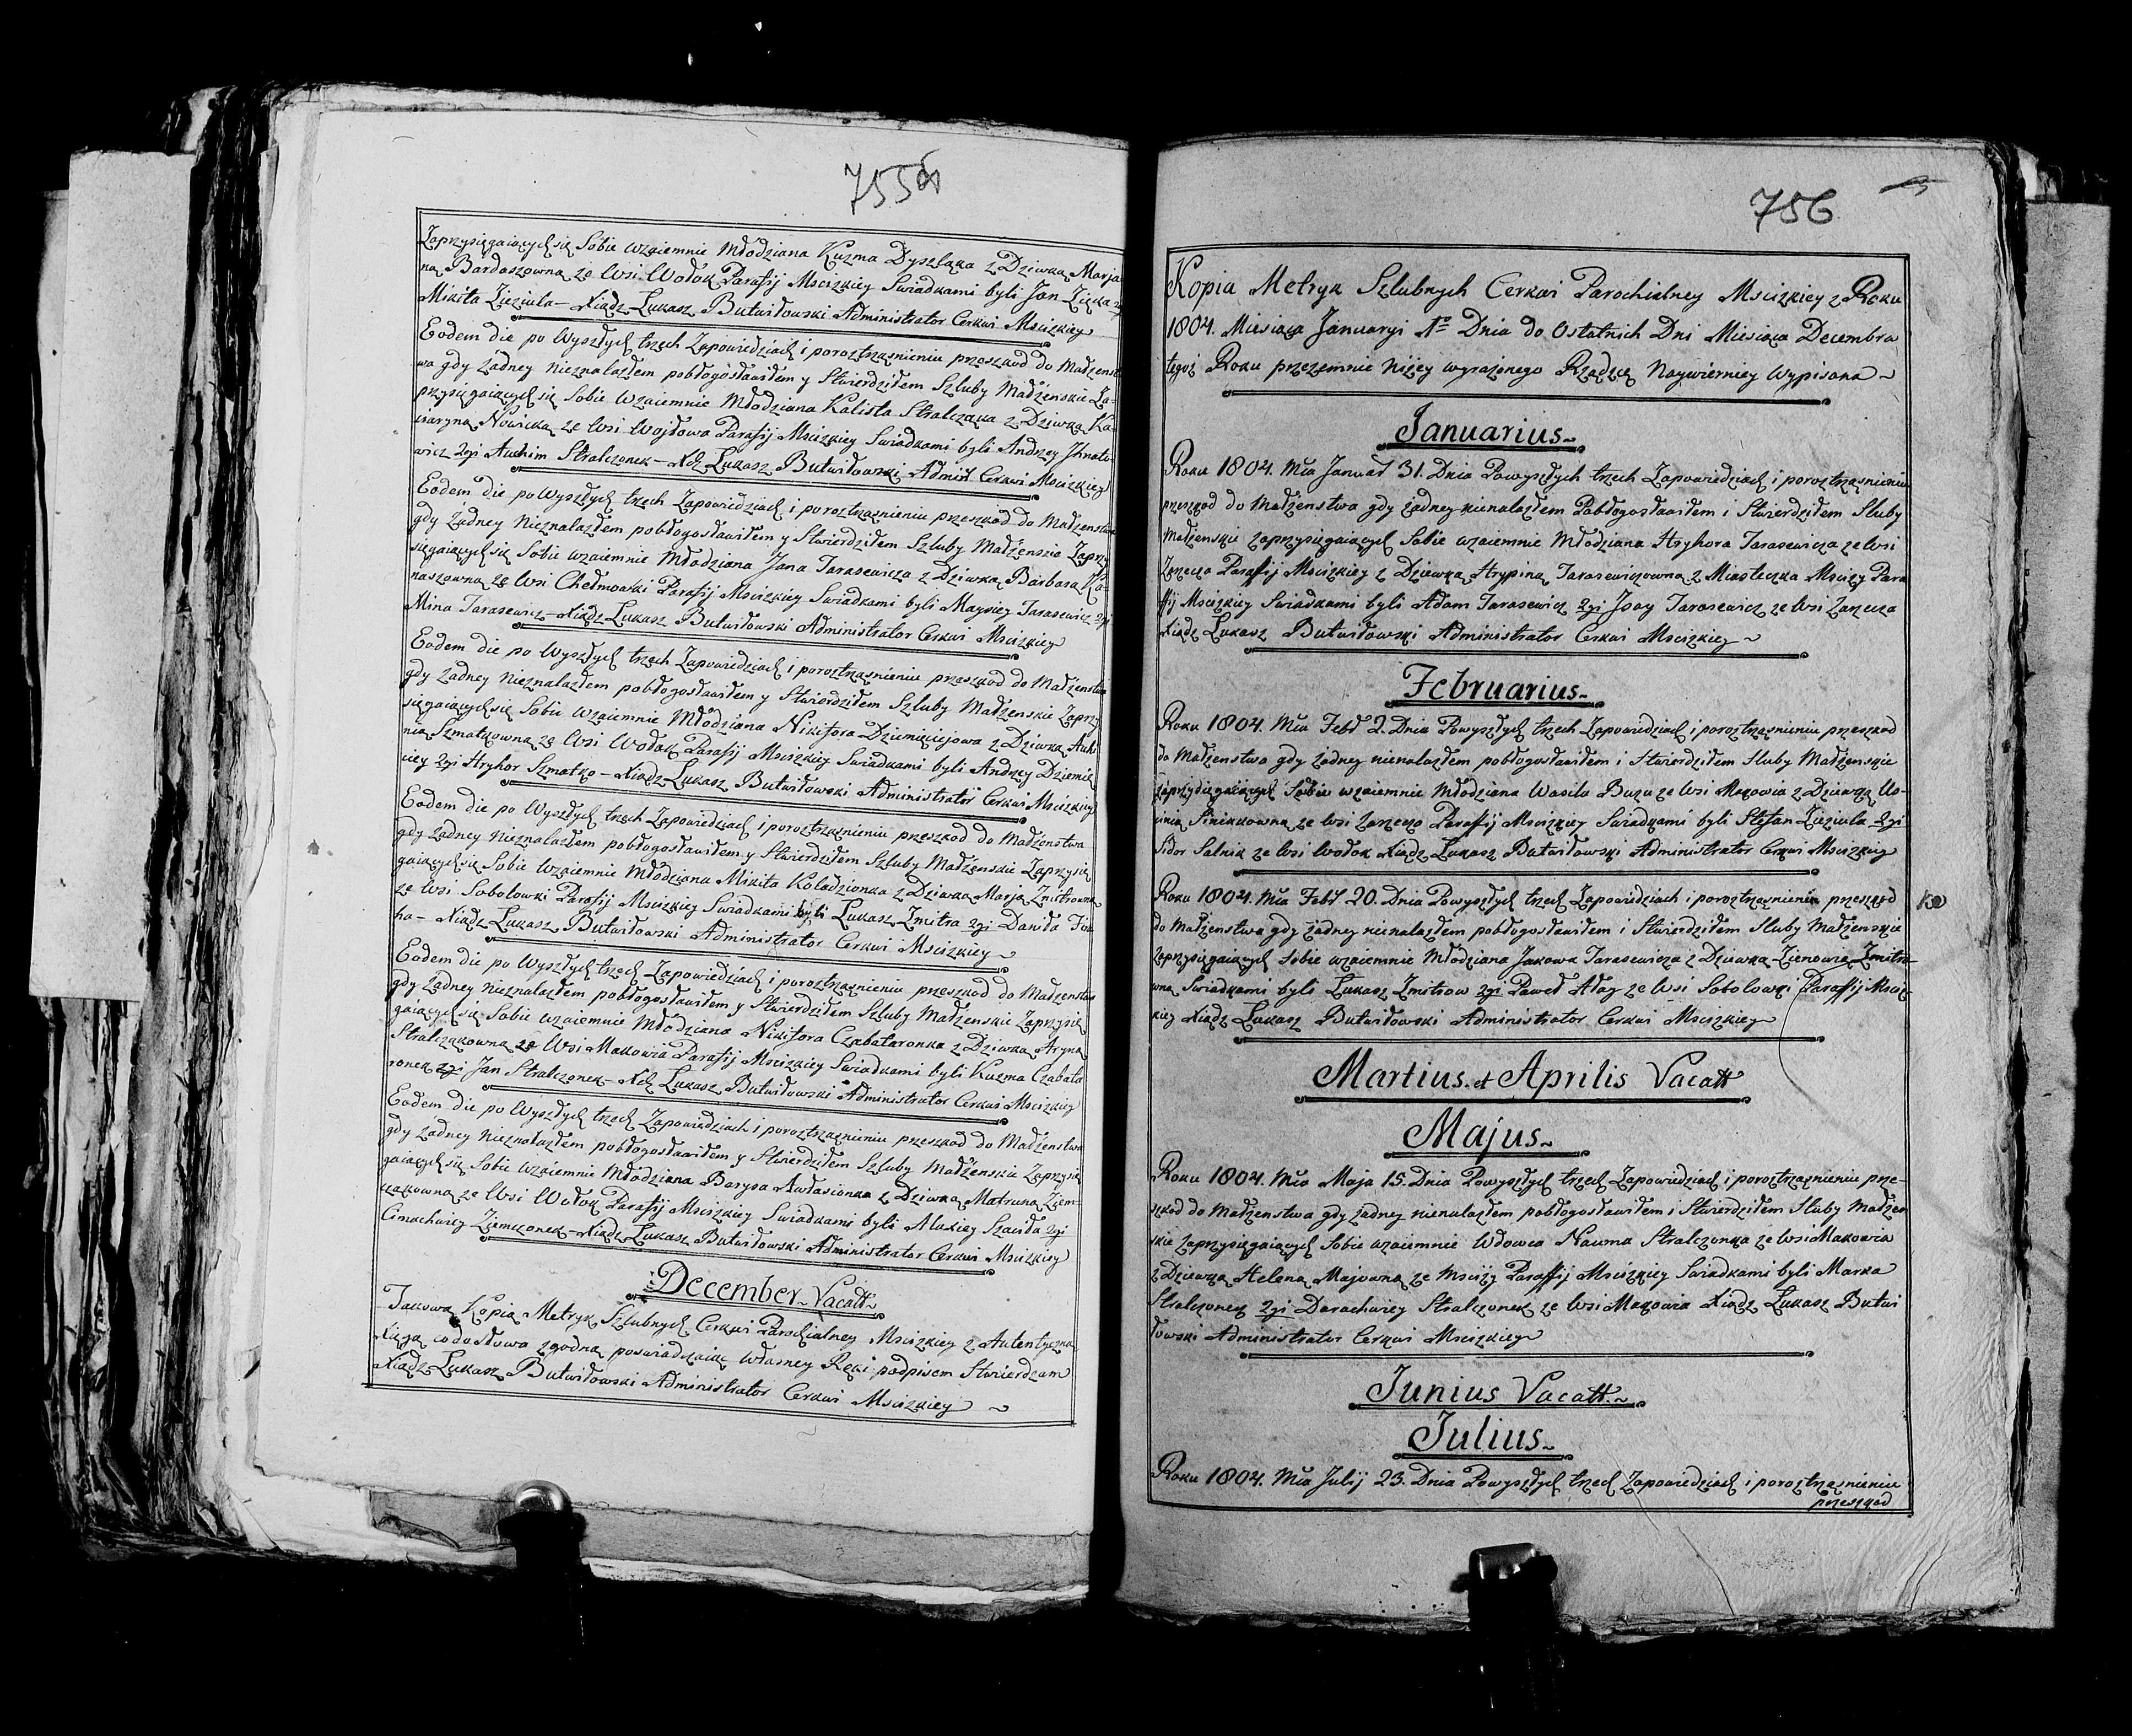 755 об
Zaprzysięgaiących się Sobie wzaiemnie Młodziana Kuzma Dyszlaka z Dziewką Marja
na Bardaszowna ze Wsi Wołok Parafij Mscizkiey Swiadkami byli Jan Zięka 2gi
Mikita Zieziula – Xiądz Łukasz Butwiłowski Administrator Cerkwi Mscizkiey
Eodem die po Wyszłych trzech Zapowiedziach i poroztrząsnieniu przeszkod do Małżenst
wa gdy żadney nieznalazłem pobłogosławiłem y Stwierdziłem Szluby Małżenskie Za-
przysięgaiących się Sobie wzaiemnie Młodziana Kalista Stralczaka z Dziewką Ka-
taryną Nowicką ze Wsi Wojdowa Parafij Mscizkiey Swiadkami byli Andrzey Jhnato
wicz 2gi Auchim Stralczonek – Xdz Łukasz Butwiłowski Admin Cerkwi Mscizkiey
Eodem die po Wyszłych trzech Zapowiedziach i poroztrząsnieniu przeszkod do Małżenstwa
gdy żadney nieznalazłem pobłogosławiłem y Stwierdziłem Szluby Małżenskie Zaprzy
sięgaiących się Sobie wzaiemnie Młodziana Jana Tarasewicza z Dziewką Barbarą Ka-
naszowna ze Wsi Chełmowki Parafij Mscizkiey Swiadkami byli Maysiey Tarasewicz 2gi
Mina Tarasewicz – Xiądz Łukasz Butwiłowski Administrator Cerkwi Mscizkiey
Eodem die po Wyszłych trzech Zapowiedziach i poroztrząsnieniu przeszkod do Małżenstwa
gdy żadney nieznalazłem pobłogosławiłem y Stwierdziłem Szluby Małżenskie Zaprzy
sięgaiących się Sobie wzaiemnie Młodziana Nikifora Dziemieciejowa z Dziewką Auhi
nią Szmatkowna ze Wsi Wołok Parafij Mscizkiey Swiadkami byli Andrzey Dziemie
ciey 2gi Hryhor Szmatko – Xiądz Łukasz Butwiłowski Administrator Cerkwi Mscizkiey
Eodem die po Wyszłych trzech Zapowiedziach i poroztrząsnieniu przeszkod do Małżenstwa
gdy żadney nieznalazłem pobłogosławiłem y Stwierdziłem Szluby Małżenskie Zaprzysię
gaiących się Sobie wzaiemnie Młodziana Mikita Koladzionka z Dziewką Marją Zmitrowna
ze Wsi Sobolowki Parafij Mscizkiey Swiadkami byli Łukasz Zmitra 2gi Daniła
ha – Xiądz Łukasz Butwiłowski Administrator Cerkwi Mscizkiey
Eodem die po Wyszłych trzech Zapowiedziach i poroztrząsnieniu przeszkod do Małżenstwa
gdy żadney nieznalazłem pobłogosławiłem y Stwierdziłem Szluby Małżenskie Zaprzysię
gaiących się Sobie wzaiemnie Młodziana Nikifora Czabataronka z Dziewką Aryną
Stralczakowna ze Wsi Makowia Parafij Mscizkiey Swiadkami byli Kuzma Czabata
ronek 2gi Jan Stralczonek – Xdz Łukasz Butwiłowski Administrator Cerkwi Mscizkiey
Eodem die po Wyszłych trzech Zapowiedziach i poroztrząsnieniu przeszkod do Małżenstwa
gdy żadney nieznalazłem pobłogosławiłem y Stwierdziłem Szluby Małżenskie Zaprzysię
gaiących się Sobie wzaiemnie Młodziana Barysa Awłasionka z Dziewką Matruną Ziem-
czakowna ze Wsi Wołok Parafij Mscizkiey Swiadkami byli Alaxiey Szawiła 2gi
Cimachwiey Ziemczonek – Xiądz Łukasz Butwiłowski Administrator Cerkwi Mscizkiey
December Vacatt
Takową Kopią Metryk Szlubnych Cerkwi Parochialney Mscizkiey z Autentyczną
Xięgą co do słowa zgodną poswiadczaiąc własney Ręki podpisem Stwierdzam
Xiądz Łukasz Butwiłowski Administrator Cerkwi Mscizkiey
756
Kopia Metryk Szlubnych Cerkwi Parochialney Mscizkiey z Roku
1804. Miesiąca Januaryi 1º Dnia do Ostatnich Dni Miesiąca Decembra
tegoż Roku przezemnie niżey wyrażonego Rządzcę Naywierniey Wypisana
Januarius
Roku 1804. Mca Januar 31. Dnia Powyszłych trzech Zapowiedziach i poroztrząsnieniu
przeszkod do Małżenstwa gdy żadney nienalazłem Pobłogosławiłem i Stwierdziłem Sluby
Małżenskie zaprzysięgaiących Sobie wzaiemnie Młodziana Hryhora Tarasewicza ze Wsi
Zarzecza Parafij Mscizkiey z Dziewką Hrypiną Tarasewiczowna z Miasteczka Mscizy Para
fij Mscizkiey Swiadkami byli Adam Tarasewicz 2gi Jsay Tarasewicz ze Wsi Zarzecza
Xiądz Łukasz Butwiłowski Administrator Cerkwi Mscizkiey
Februarius
Roku 1804. Mca Febr 2. Dnia Powyszłych trzech Zapowiedziach i poroztrząsnieniu przeszkod
do Małżenstwa gdy żadney nienalazłem pobłogosławiłem i Stwierdziłem Sluby Małżenskie
zaprzysięgaiących Sobie wzaiemnie Młodziana Wasila Buzu ze Wsi Makowia z Dziewką Us-
cinią Sinikowna ze Wsi Zarzecza Parafij Mscizkiey Swiadkami byli Stefan Zieziula 2gi
Sidor Salnik ze Wsi Wołok Xiądz Łukasz Butwiłowski Administrator Cerkwi Mscizkiey
Roku 1804. Mca Febr 20. Dnia Powyszłych trzech Zapowiedziach i poroztrząsnieniu przeszkod
do Małżenstwa gdy żadney nienalazłem pobłogosławiłem i Stwierdziłem Sluby Małżenskie
zaprzysięgaiących Sobie wzaiemnie Młodziana Jakowa Tarasewicza z Dziewką Zienowią Zmitro-
wną Swiadkami byli Łukasz Zmitrow 2gi Paweł Ałay ze Wsi Sobolowki Parafij Msciz
kiey Xiądz Łukasz Butwiłowski Administrator Cerkwi Mscizkiey
Martius et Aprilis Vacatt
Majus
Roku 1804. Mca Maja 15. Dnia Powyszłych trzech Zapowiedziach i poroztrząsnieniu prze-
szkod do Małżenstwa gdy żadney nienalazłem pobłogosławiłem i Stwierdziłem Sluby Małżen
skie zaprzysięgaiących Sobie wzaiemnie Wdowca Nauma Stralczonka ze Wsi Makowia
z Dziewką Heleną Majowna ze Msciży Parafij Mscizkiey Swiadkami byli Marka
Stralczonek 2gi Darachwiey Stralczonek ze Wsi Makowia Xiądz Łukasz Butwi
łowski Administrator Cerkwi Mscizkiey
Junius Vacatt
Julius
Roku 1804. Mca Julij 23. Dnia Powyszłych trzech Zapowiedziach i poroztrząsnieniu
przeszkod